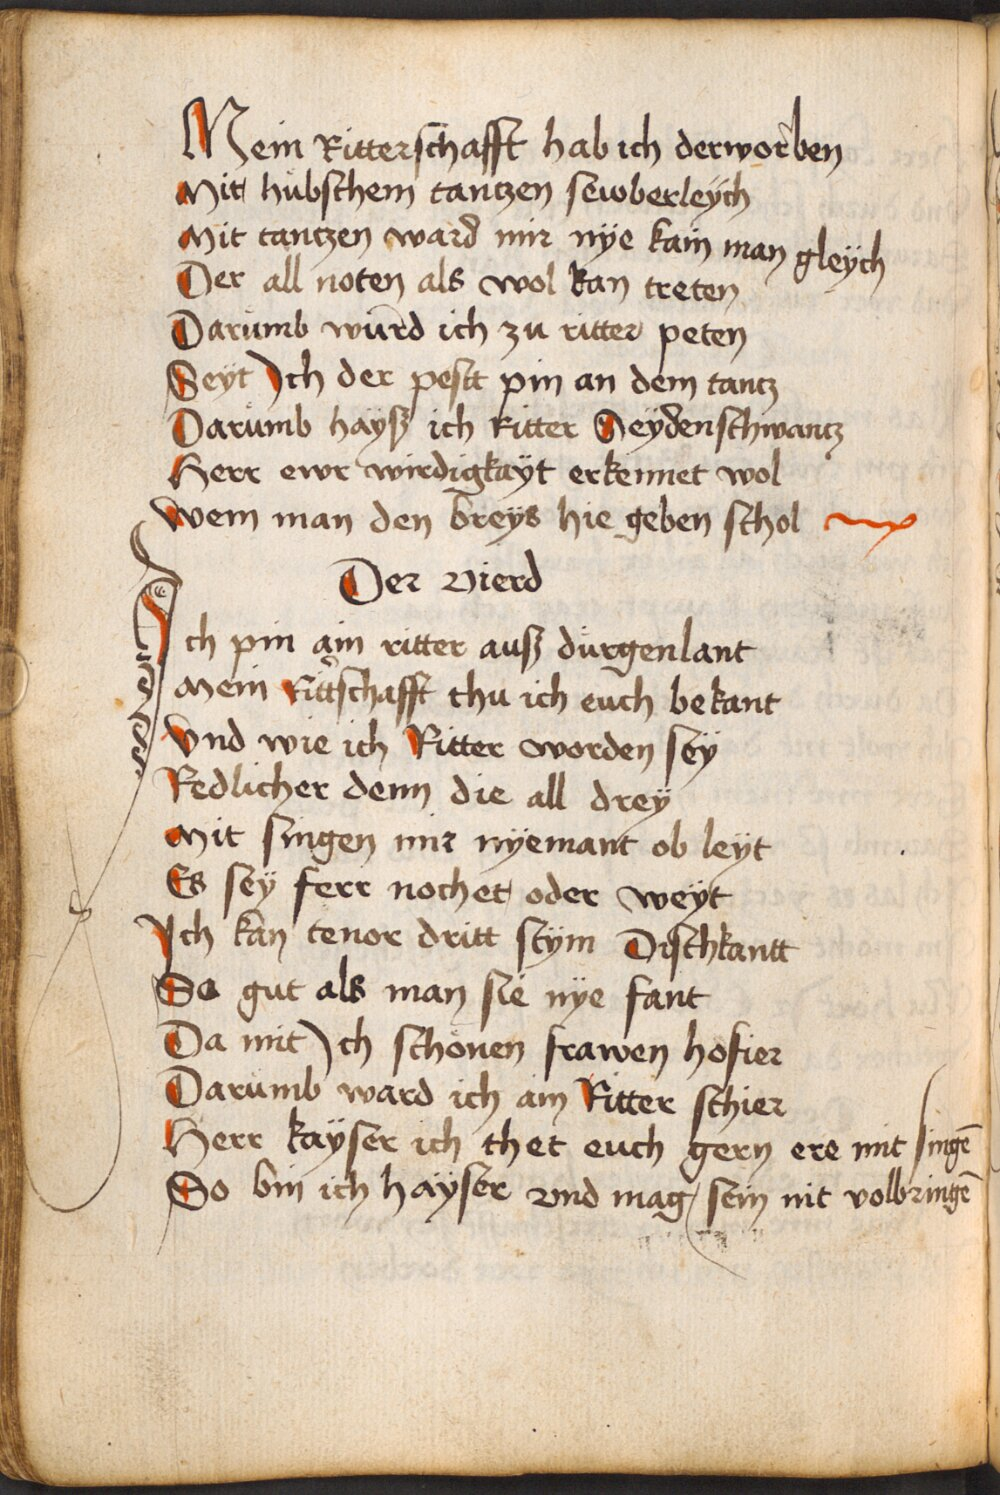 Mein Ritterschafft hab ich derworben
Mit hübschem tantzen sewberleÿch
Mit tantzen ward mir nÿe kain man gleÿch
Der all noten als wol kan treten
Darümb würd ich zu ritter peten
Seÿt Ich der pestt pin an dem tantz
Darümb haÿß ich Ritter Seÿdenschwantz
Herr ewr wirdigkaÿt erkennet wol
Wem man den breÿs hie geben schol
Der vierd
Ich pin ain ritter auß dürgenlant
Mein Rittschafft thu ich euch bekant
Vnd wie ich Ritter worden seÿ
Redlicher denn die all dreÿ
Mit singen mir nÿemant ob leÿt
Es seÿ ferr nochet oder weÿt
Ich kan tenor dritt stÿm Dischkantt
So gut als man sie nÿe fant
Da mit Ich schönen frawen hofier
Darümb ward ich ain Ritter schier
Herr kaÿser ich thet euch gern ere mit singē
So bin ich haÿser vnd mag sein nit volbringē